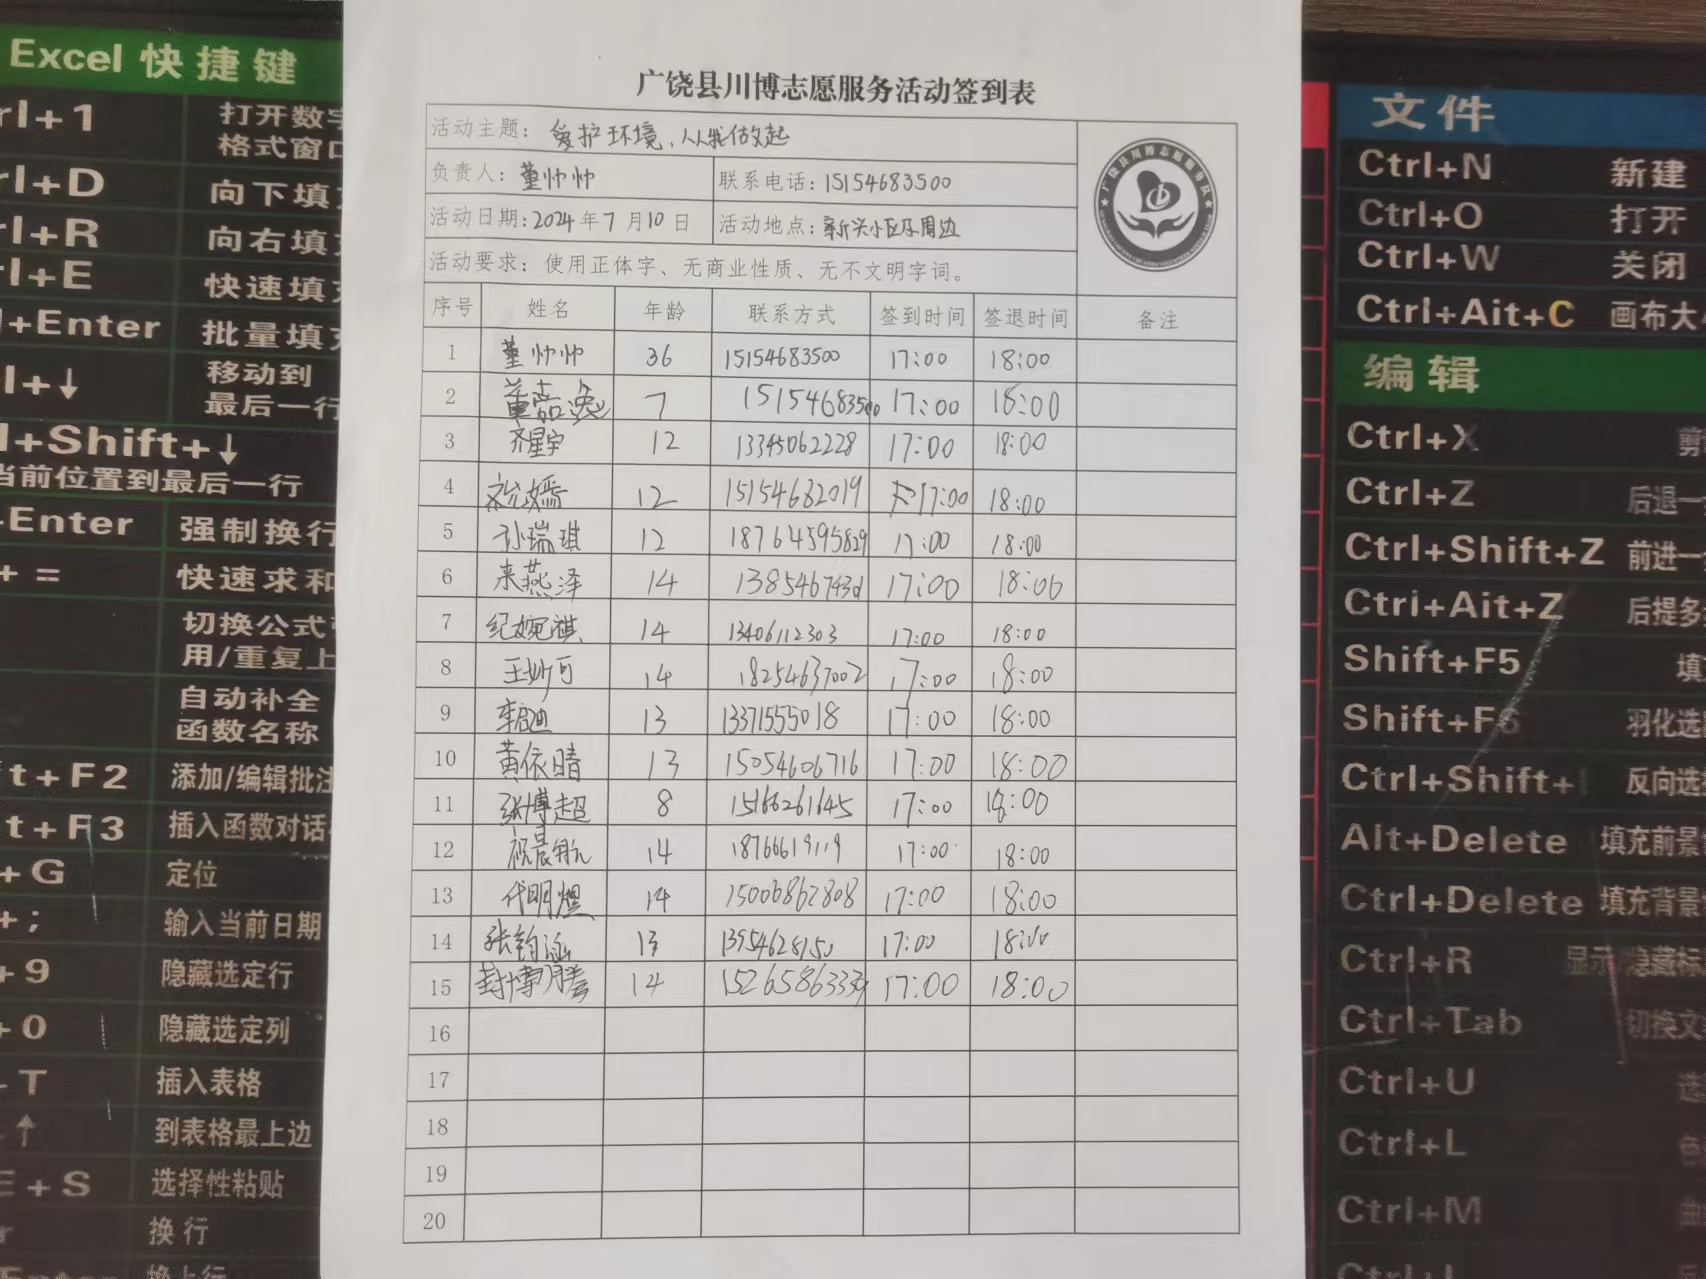 Excel 快捷键
rl+1 打开数字
格式窗口
rl+D 向下填充
rl+R 向右填充
rl+E 快速填充
l+Enter 批量填充
l+↓ 移动到
最后一行
l+Shift+↓
当前位置到最后一行
+Enter 强制换行
+ = 快速求和
切换公式
用/重复上
自动补全
函数名称
t+F2 添加/编辑批注
t+F3 插入函数对话
+G 定位
+; 输入当前日期
+9 隐藏选定行
+0 隐藏选定列
T 插入表格
↑ 到表格最上边
E+S 选择性粘贴
r 换行
Enter 换上行
广饶县川博志愿服务活动签到表
活动主题：爱护环境，从我做起
负责人：董帅帅 联系电话：15154683500
活动日期：2024年7月10日 活动地点：新兴小区及周边
活动要求：使用正体字、无商业性质、无不文明字词。
广饶县川博志愿服务队
序号 姓名 年龄 联系方式 签到时间 签退时间 备注
1 董帅帅 36 15154683500 17:00 18:00
2 董嘉逸 7 15154683500 17:00 18:00
3 齐星宇 12 13345062228 17:00 18:00
4 12 15154682019 17:00 18:00
5 孙瑞琪 12 18764595829 17:00 18:00
6 来燕泽 14 17:00 18:00
7 纪婉祺 14 13406112303 17:00 18:00
8 王妙可 14 18254637002 17:00 18:00
9 13 13371555018 17:00 18:00
10 黄依晴 13 15054606716 17:00 18:00
11 张博超 8 15166261645 17:00 18:00
12 祝晨航 14 18766619119 17:00 18:00
13 代明煜 14 15006862808 17:00 18:00
14 张钧涵 13 13954628150 17:00 18:00
15 封博腾 14 17:00 18:00
16
17
18
19
20
文件
Ctrl+N 新建
Ctrl+O 打开
Ctrl+W 关闭
Ctrl+Ait+C 画布大小
编辑
Ctrl+X 剪
Ctrl+Z 后退一
Ctrl+Shift+Z 前进一
Ctri+Ait+Z 后提多
Shift+F5 填
Shift+F6 羽化选
Ctrl+Shift+I 反向选
Alt+Delete 填充前景
Ctrl+Delete 填充背景
Ctrl+R 显示/隐藏标
Ctrl+Tab 切换文
Ctrl+U 选
Ctrl+L 色
Ctrl+M 曲
Ctrl+I 反